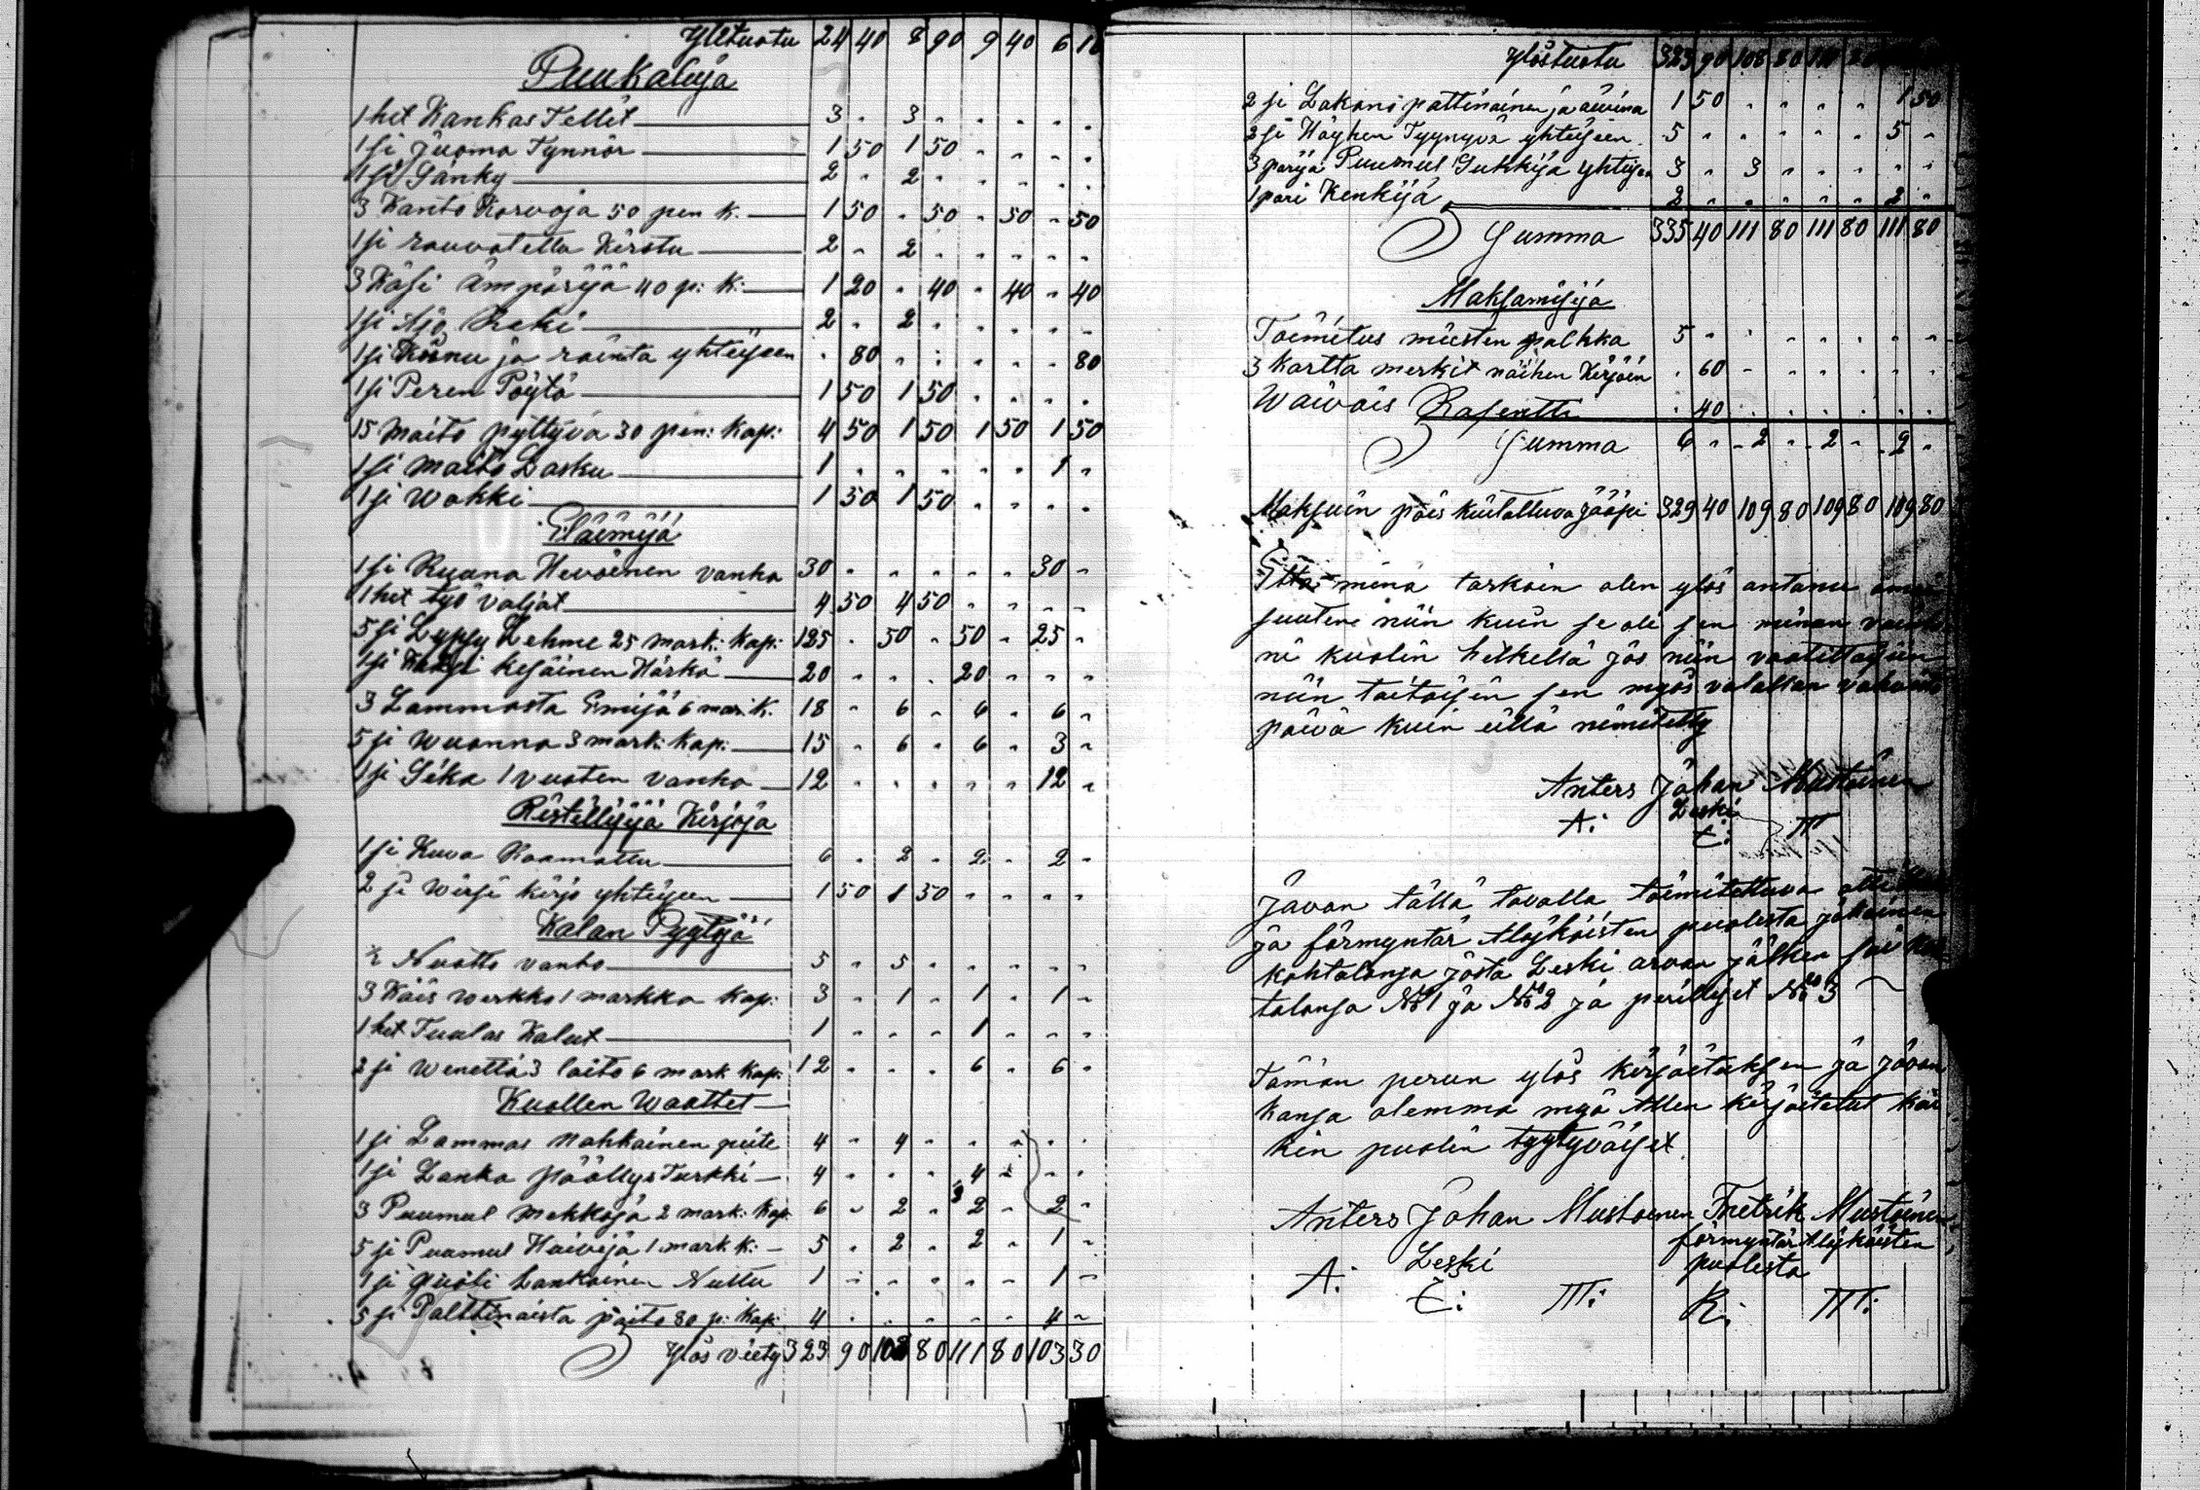 Yletuotu 24 40 8 90 9 40 6 10
Puukaluja
1 het Kankas Tellit 3 " 3 " " " " "
1 ji Juoma Tynnör 1 50 1 50 " " " "
1 ji Sänky 2 " 2 " " " " "
3 Kanto Korvoja 50 pen k. 1 50 " 50 " 50 " 50
1 ji rauvotettu Kirstu 2 " 2 " " " " "
3 Käsi ämpärijä 40 p: k: 1 20 " 40 " 40 " 40
1 ji Ajo Reki 2 " 2 " " " " "
1 ji Kirnu ja rainta yhteijeen " 80 " " " " " 80
1 ji Peren Pöytä 1 50 1 50 " " " "
15 Maito pyttyvä 30 pen: kap: 4 50 1 50 1 50 1 50
1 ji Maito Lasku 1 " " " " " 1 "
1 ji Wokki 1 50 1 50 " " " "
Eläimijä
1 ji Ruuna Hevoinen vanha 30 " " " " " 30 "
1 het työ valjat 4 50 4 50 " " " "
5 ji Lypsy Lehme 25 mark: kap: 125 " 50 " 50 " 25 "
1 ji kesäinen Härkä 20 " " " 20 " " "
3 Lammasta Emijä 6 mar: k. 18 " 6 " 6 " 6 "
5 ji Wuonna 3 mark: kap: 15 " 6 " 6 " 3 "
1 ji Sika 1 vuoten vanha 12 " " " " " 12 "
Ristillijijä Kirjoja
1 ji Kuva Raamattu 6 " 2 " 2 " 2 "
2 ji Wirsi kirjo yhteijeen 1 50 1 50 " " " "
Kalan Pyytyjä
½ Nuotto vanha 5 " 5 " " " " "
3 Käis Werkko 1 markka kap: 3 " 1 " 1 " 1 "
1 het Tuulas Kalut 1 " " " 1 " " "
2 ji Wenettä 3 laito 6 mark kap: 12 " " " 6 " 6 "
Kuollen Waattet
1 ji Lammas Nahkainen peite 4 " 4 " " " " "
1 ji Lanka päällys Turkki 4 " " " 4 " " "
3 Puumul Mekkoja 2 mark: kap. 6 " 2 " 2 " 2 "
5 ji Puumul Haivija 1 mark k. 5 " 2 " 2 " 1 "
1 ji Lankainen Nuttu 1 " " " " " 1 "
5 ji Palttinaista paito 80 p: kap: 4 " " " " " 4 "
Ylös viety 323 90 108 80 111 80 103 30
Ylöstuotu 323 90 108 80 111
2 ji Lakana pattinainen ja 1 50 " " " " 1 50
2 ji Höyhen Tyynyvä yhteijeen. 5 " " " " " 5 "
3 parija Puumul Sukkija 3 " 3 " " " " "
1 pari Kenkijä 2 " " " " " 2 "
Summa 335 40 111 80 111 80 111 80
Maksamisija
Toimitus miesten palkka 5 " " " " " " "
3 Kartta merkit näihen Kirjöin " 60 " " " " " "
Waivais Rasentti " 40 " " " " " "
Summa 6 " 2 " 2 " 2 "
Maksuin pois luetattuva Jääpi 329 40 109 80 109 80 109 80
Että minä tarkoin olen ylös antanu
suuteni niin kuin se oli sen minun
ni kuolin hetkellä jos niin vaatittaisiin
niin taitaisin sen myös valallan
päivä kuin ellä nimitetty
Anters Johan Mustoinen
Leski
A: E: M
Javan tällä tavalla toimitettuva
ja förmyntär Alajkäisten puolesta
kohtalonsa josta Leski arvan jälken sai
talonsa No 1 ja No 2 ja perilliset No 3
Täman perun ylös kirjoituksen ja jävan
kansa olemma myö Allen kirjoitetut
kin puolin tyytyväiset.
Anters Johan Mustoinen Fretrik Mustoinen
Leski förmyntär Alajkäisten
puolesta
A: E: M: K: M: